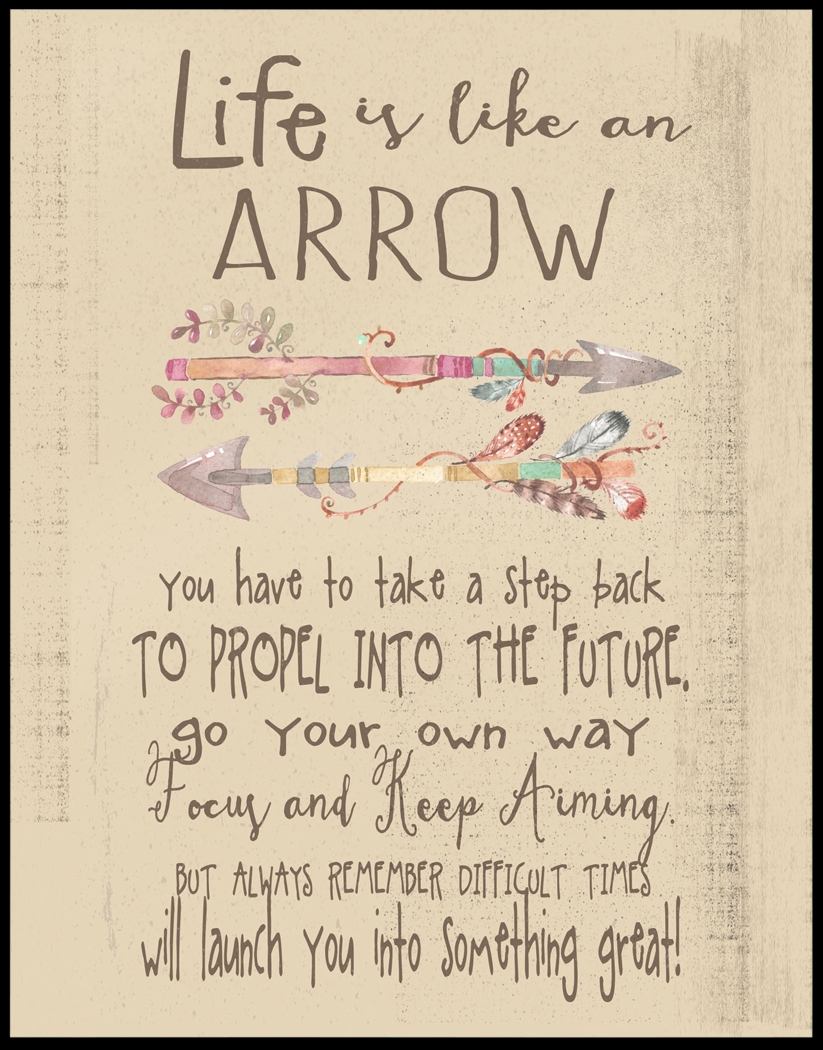 Life is like an
ARROW
you have to take a step back
TO PROPEL INTO THE FUTURE.
go your own way
Focus and Keep Aiming.
BUT ALWAYS REMEMBER DIFFICULT TIMES
will launch you into something great!